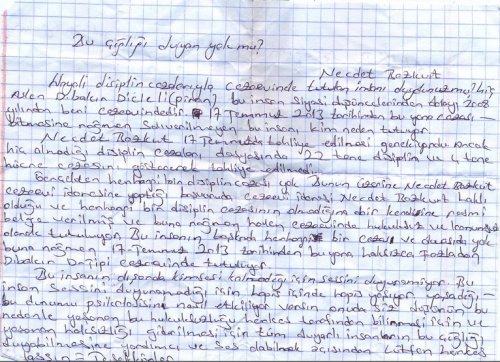 Bu çığlığı duyan yokmu?
Necdet Bozkurt
Hayali disiplin cezalarıyla cezaevinde tutulan insanı duydunuzmu? hiç
Aslen Dıbakın Dicleli (piran) bu insan siyasi düşüncelerinden dolayı 2008
yılından beri cezaevindedir. 17 Temmuz 2013 tarihinden bu yana cezası
bitmesine rağmen Salıverilmeyen bu insanı kim neden tutuyor.
Necdet Bozkurt 17 Temmuzda tahliye edilmesi gerekiyordu ancak
hiç almadığı disiplin cezaları dosyasında 22 tane disiplin ve 4 tane
hücre cezası gösterilerek tahliye edilmedi.
Gerçekten herhangi bir disiplin cezası yok. Bunun üzerine Necdet Bozkurt
cezaevi idaresine yaptığı başvuruda cezaevi idaresi Necdet Bozkurt haklı
olduğu ve herhangi bir disiplin cezasının olmadığına dair kendisine resmi
belge verilmiş ve buna rağmen halen cezaevinde hukuksuz ve
olarak tutuluyor. Bu insanın başkada herhangi bir cezası ve davasıda yok
buna rağmen 17 Temmuz 2013 tarihinden bu yana haksızca fazladan
Dibakın cezaevinde tutuluyor.
Bu insanın dışarıda kimsesi kalmadığı için sesini duyuramıyor. Bu
insan sesini duyuramadığı için hapis içinde hapis yaşıyor, yaşadığı
bu durumu psikolojisine nasıl etkiliyor varsın onuda siz düşünün bu
nedenle yaşanan bu hukuksuzluğu herkes tarafından bilinmesi için ve
yaşanan haksızlığı giderilmesi için tüm duyarlı insanların bu çığlığı
duyabilmesine yardımcı ve ses olabilmek açısından Lütfen herkes